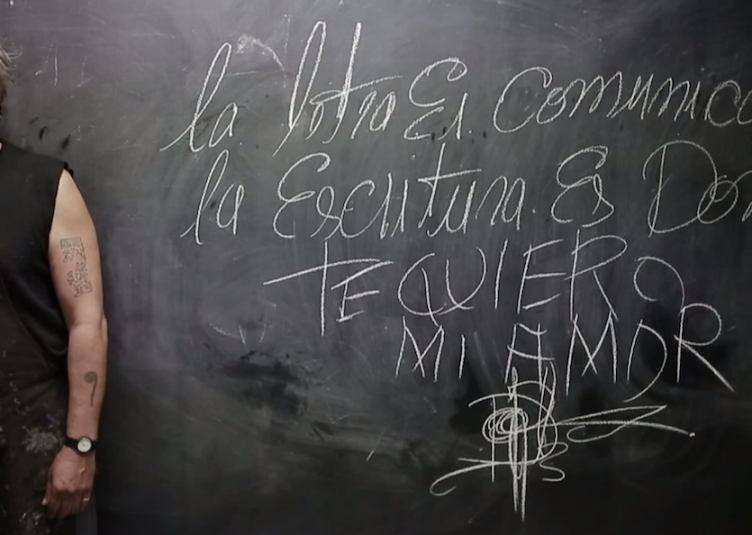 la letra Es Comunica
la Escritura Es Don
TE QUIERO
MI AMOR